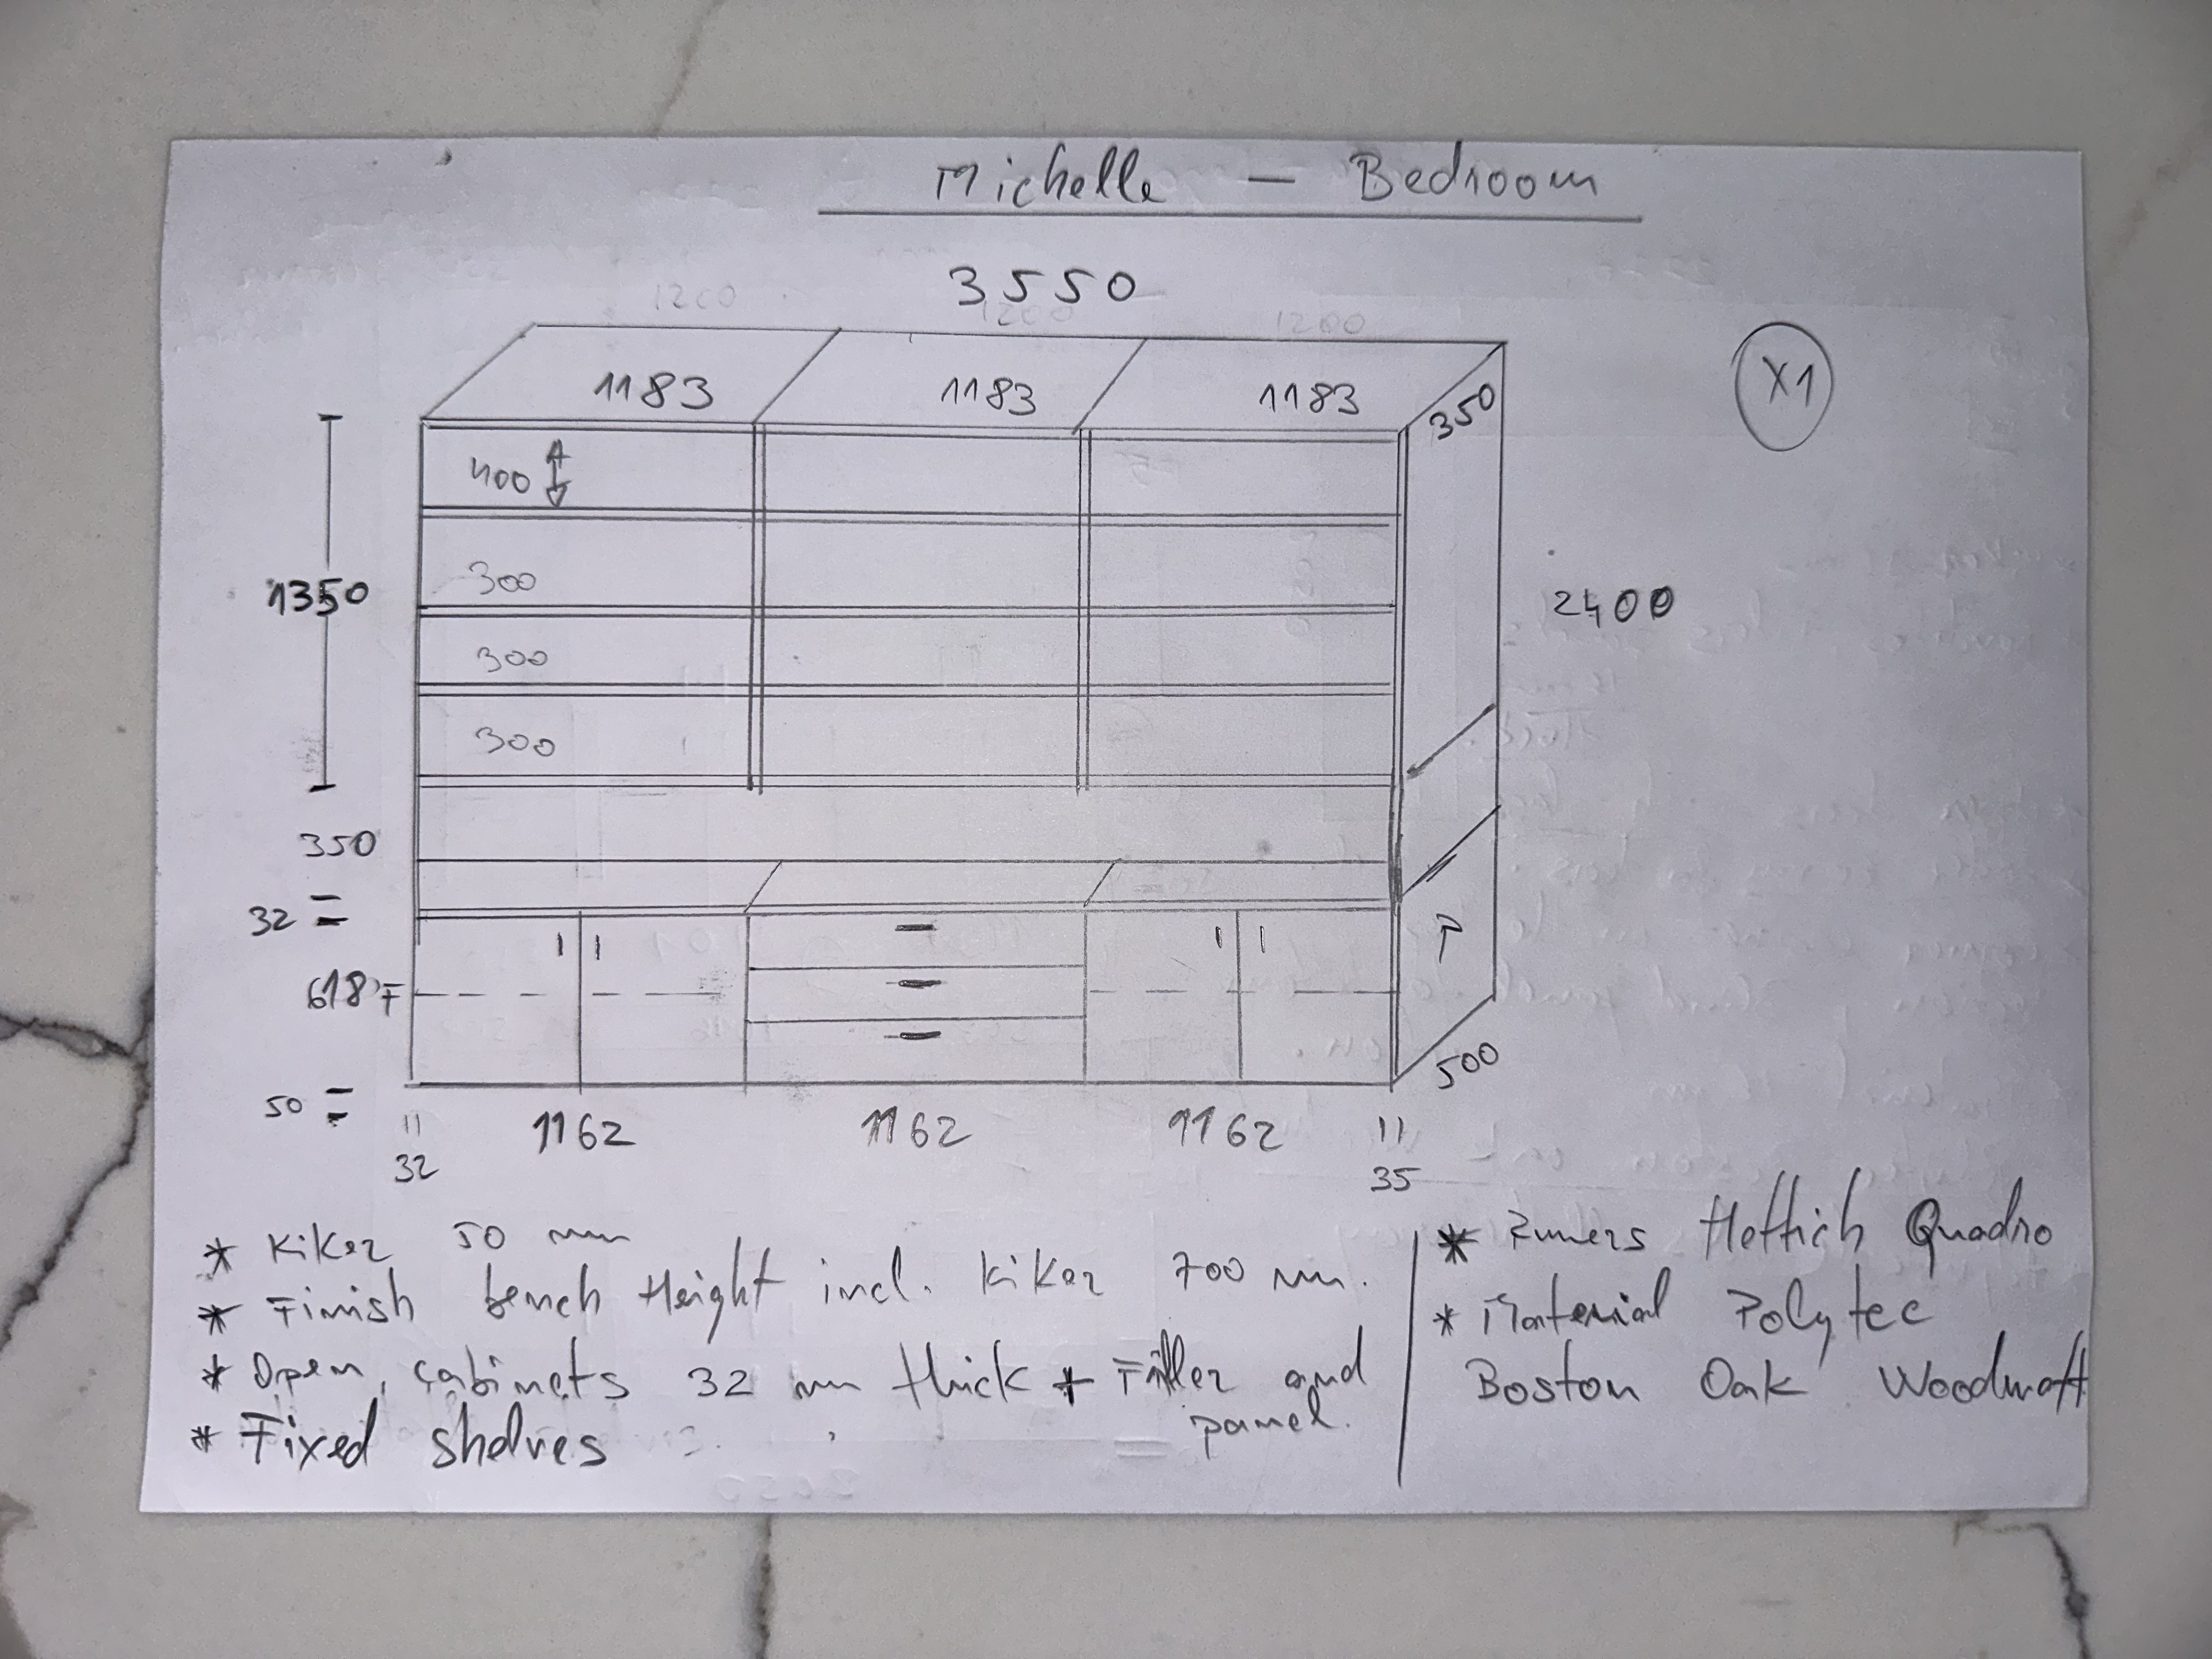 Michelle — Bedroom
3550
1200 1200 1200
1183 1183 1183
350
X1
400
300
1350
2400
300
300
350
32 =
P
618 F
500
50 =
1162 1162 1162
32 35
* Kiker 50 mm
* Finish bench Height incl. Kiker 700 mm.
* Open cabinets 32 mm thick + Filler and
panel.
* Fixed shelves
* Runers Hettich Quadro
* Material Polytec
Boston Oak Woodmatt